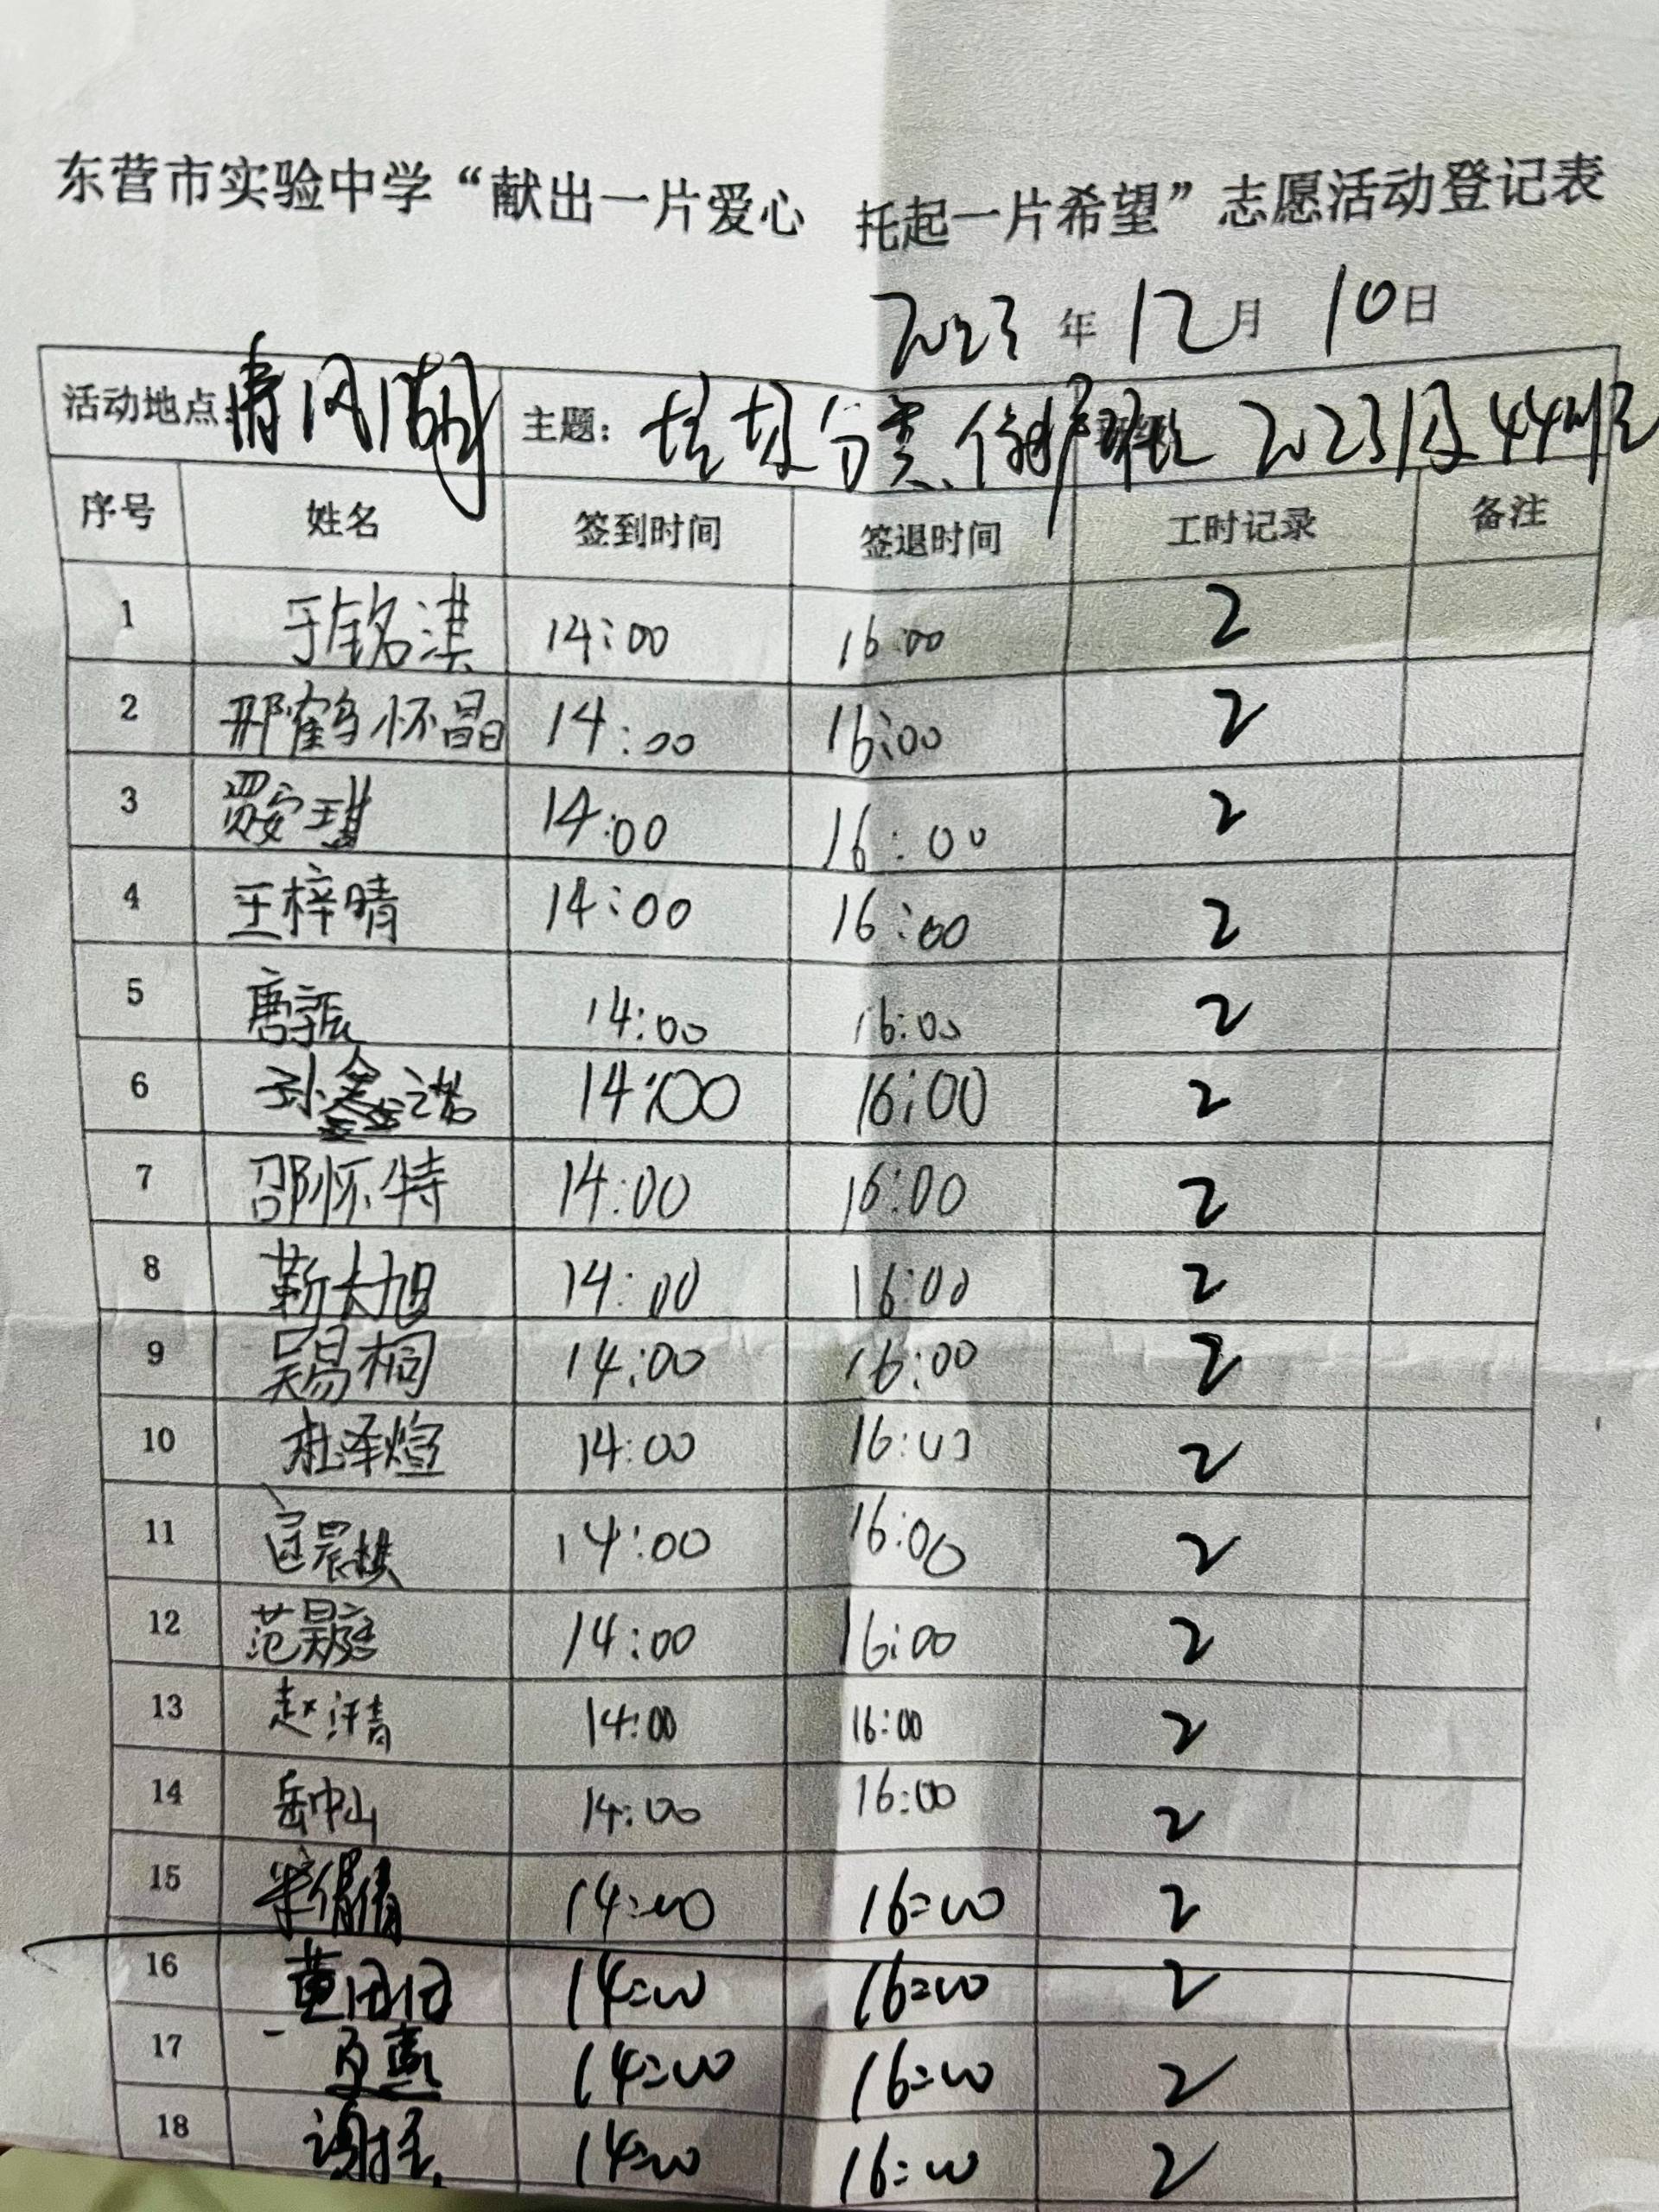 东营市实验中学“献出一片爱心 托起一片希望”志愿活动登记表
2023年12月10日
活动地点:清风湖 主题:垃圾分类、 2023级44班
序号 姓名 签到时间 签退时间 工时记录 备注
1 于铭淇 14:00 16:00 2
2 邢鹤怀晶 14:00 16:00 2
3 贾安琪 14:00 16:00 2
4 王梓晴 14:00 16:00 2
5 唐 14:00 16:00 2
6 孙鑫诺 14:00 16:00 2
7 邵怀特 14:00 16:00 2
8 靳大旭 14:00 16:00 2
9 吴易桐 14:00 16:00 2
10 杜泽煊 14:00 16:00 2
11 晨 14:00 16:00 2
12 范昊庭 14:00 16:00 2
13 赵汗青 14:00 16:00 2
14 岳中山 14:00 16:00 2
15 倩 14:00 16:00 2
16 黄 14:00 16:00 2
17 14:00 16:00 2
18 14:00 16:00 2